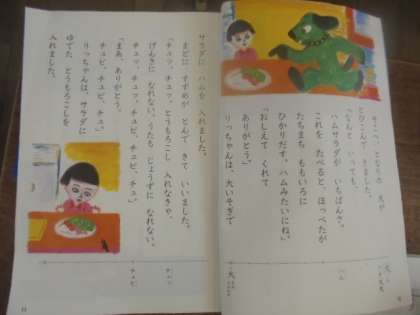 そこへ、となりの 犬が
とびこんで きました。
「なんと いっても、
ハムサラダが いちばんさ。
これを たべると、ほっぺたが
たちまち ももいろに
ひかりだす。ハムみたいにね。」
「おしえて くれて
ありがとう。」
りっちゃんは、大いそぎで
犬
ハム
大
サラダに ハムを 入れました。
まどに すずめが とんで きて いいました。
「チュッ、チュッ、とうもろこし 入れなきゃ、
げんきに なれない。うたも じょうずに なれない。
チュピ、チュッ、チュピ、チュピ、チュ。」
「まあ、ありがとう。
チュピ、チュピ、チュ。」
りっちゃんは、サラダに
ゆでた とうもろこしを
入れました。
チュッ
チュピ
11